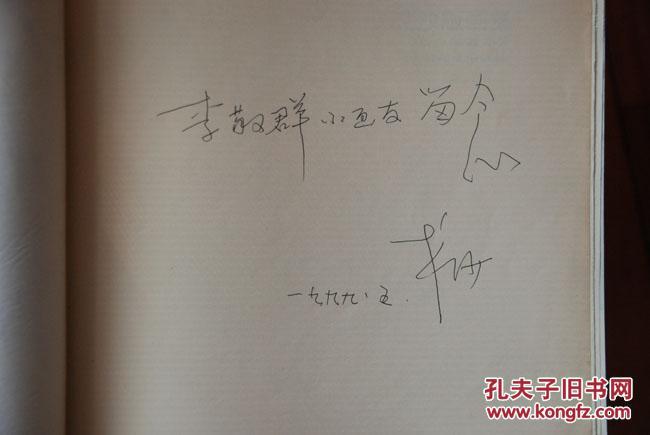 李敬群小画友 留念
一九九九·五.
孔夫子旧书网
www.kongfz.com